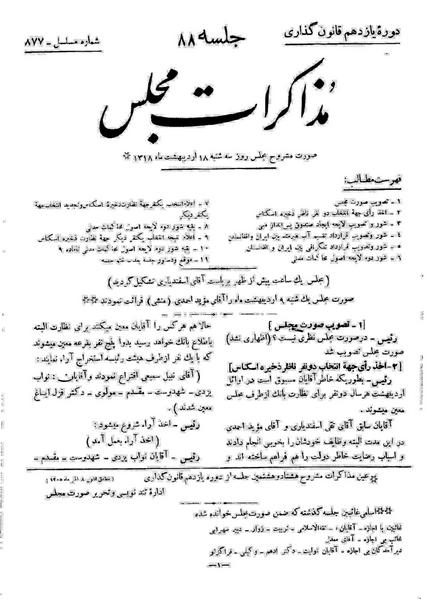 دورهٔ یازدهم قانون گذاری
جلسه ۸۸
شماره مسلسل - ۸۷۷
مذاکرات مجلس
صورت مشروح مجلس روز سه شنبه ۱۸ اردیبهشت ماه ۱۳۱۸ *
فهرست مطالب:
۱ - تصویب صورت مجلس
۲ - اخذ رأی جهة انتخاب دو نفر ناظر ذخیره اسکناس
۳ - شور و تصویب لایحه ایجاد صندوق پس‌انداز ملی
۴ - شور و تصویب قرارداد تقسیم آب هیرمند بین ایران و افغانستان
۵ - شور و تصویب قرارداد تلگرافی بین ایران و افغانستان
۶ - شور دوم لایحه اصول محاکمات مدنی
۷ - اعلام انتخاب یکنفر جهة نظارت ذخیرهٔ اسکناس و تجدید انتخاب جهة
یکنفر دیگر
۸ - بقیه شور دوم لایحه اصول محاکمات مدنی
۹ - اعلام نتیجه انتخاب یکنفر دیگر جهة نظارت ذخیره اسکناس
۱۰ - بقیه شور دوم لایحه اصول محاکمات مدنی تا ماده ۹
۱۱ - موقع و دستور جلسه بعد - ختم جلسه
(مجلس یک ساعت پیش از ظهر بریاست آقای اسفندیاری تشکیل گردید)
صورت مجلس یک شنبه اردیبهشت ماه را آقای مؤید احمدی (منشی) قرائت نمودند
[۱ - تصویب صورت مجلس]
رئیس - در صورت مجلس نظری نیست؟ (اظهاری نشد)
صورت مجلس تصویب شد
[۲ - اخذ رأی جهة انتخاب دو نفر ناظر ذخیره اسکناس]
رئیس - بطوریکه خاطر آقایان مسبوق است در اوائل
اردیبهشت هر سال دو نفر برای نظارت بانک از طرف مجلس
معین میشوند.
آقایان سابق آقای تقی اسفندیاری و آقای مؤید احمدی
در این مدت البته وظایف خودشان را بخوبی انجام دادند
و اسباب رضایت خاطر دولت را هم فراهم ساخته اند و
حالا هم هر کس را آقایان معین میکنند برای نظارت البته
باطلاع بانک خواهد رسید بدواً پنج نفر بقرعه معین میشوند
که با یک نفر از طرف هیئت رئیسه استخراج آراء نمایند:
(آقای نبیل سمیعی اقتراع نمودند و آقایان: نواب
یزدی - شهدوست - مقدم - مولوی - دکتر قزل ایاغ
معین شدند.)
رئیس - اخذ آراء شروع میشود:
(اخذ آراء بعمل آمد)
رئیس - آقایان نواب یزدی - شهدوست - مقدم -
* عین مذاکرات مشروح هشتاد و هشتمین جلسه از دوره یازدهم قانون گذاری
اداره تند نویسی و تحریر صورت مجلس
* اسامی غائبین جلسه گذشته که ضمن صورت مجلس خوانده شده
غائبین با اجازه - آقایان: ثقةالاسلامی - تربیت - زوار - دبیر سهرابی
غائب بی اجازه - آقای معدل
دیرآمدگان بی اجازه - آقایان: لوایت - دکتر ادهم - وکیلی - فرا گزلو
- ۱ -